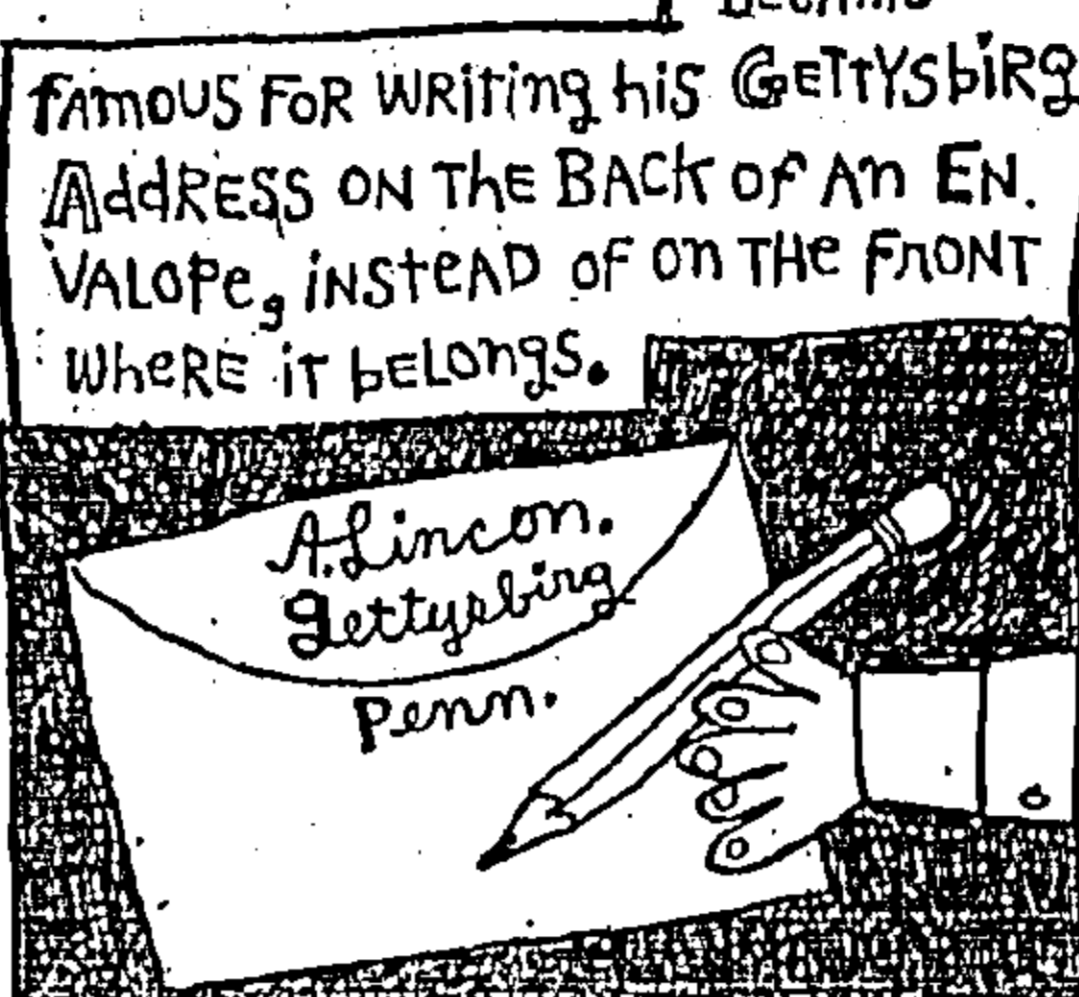 fAmous FoR WRiting his GETTYsbiRg
AddRESS ON ThE BACk of An EN.
VALOPe, iNSteAD of on THe FRONT
WheRE iT bELongS.
A. Lincon.
gettysbirg
Penn.